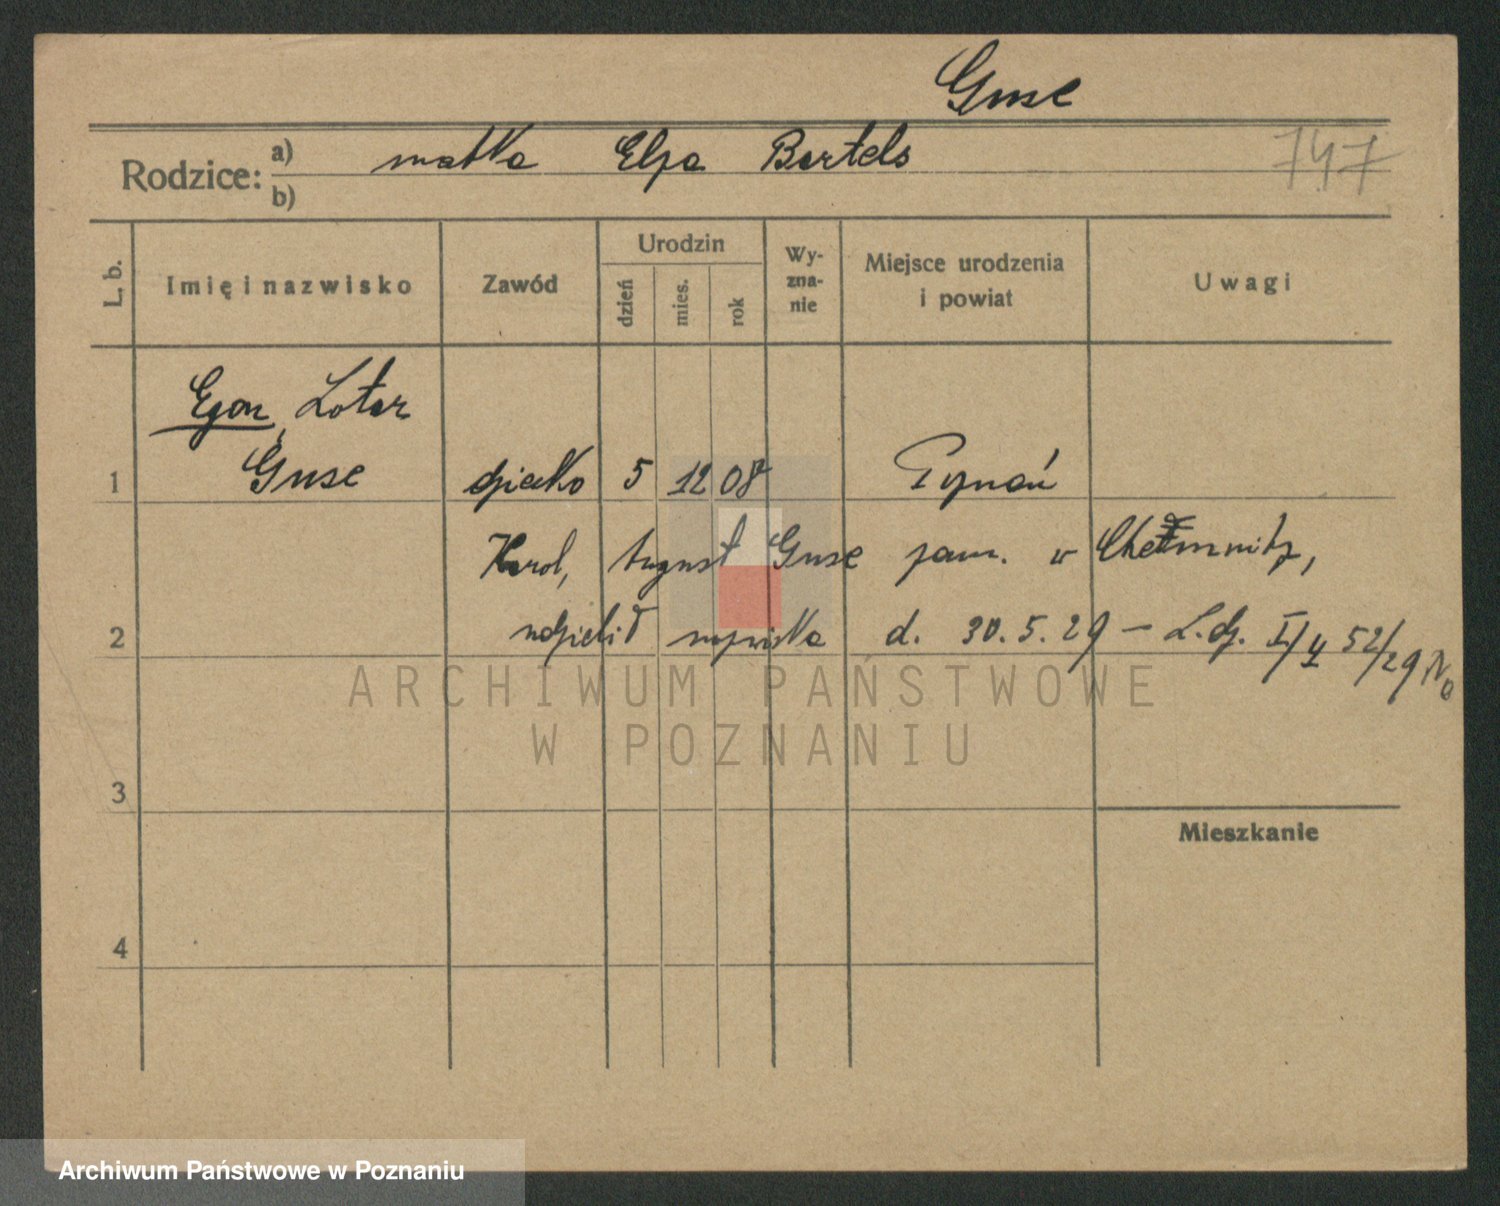 Guse
Rodzice: a) matka Elza Bartels
b)
747
L. b. Imię i nazwisko Zawód Urodzin dzień mies. rok Wy-zna-nie Miejsce urodzenia i powiat Uwagi
Egon, Lotar
1 Guse dziecko 5 12 08 Poznań
Karol, August Guse zam. w Chemnitz,
2 udzielił nazwiska d. 30.5.29 – L.dz. I/ 52/29
ARCHIWUM PAŃSTWOWE
W POZNANIU
3
Mieszkanie
4
Archiwum Państwowe w Poznaniu